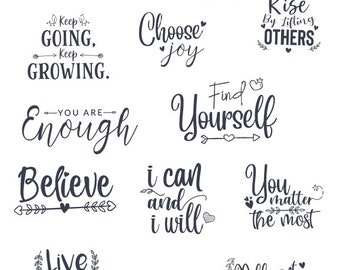 Keep
GOING,
Keep
GROWING.
Choose
joy
Rise
By Lifting
OTHERS
YOU ARE
Enough
Find
Yourself
Believe
i can
and
i will
You
matter
the most
Live